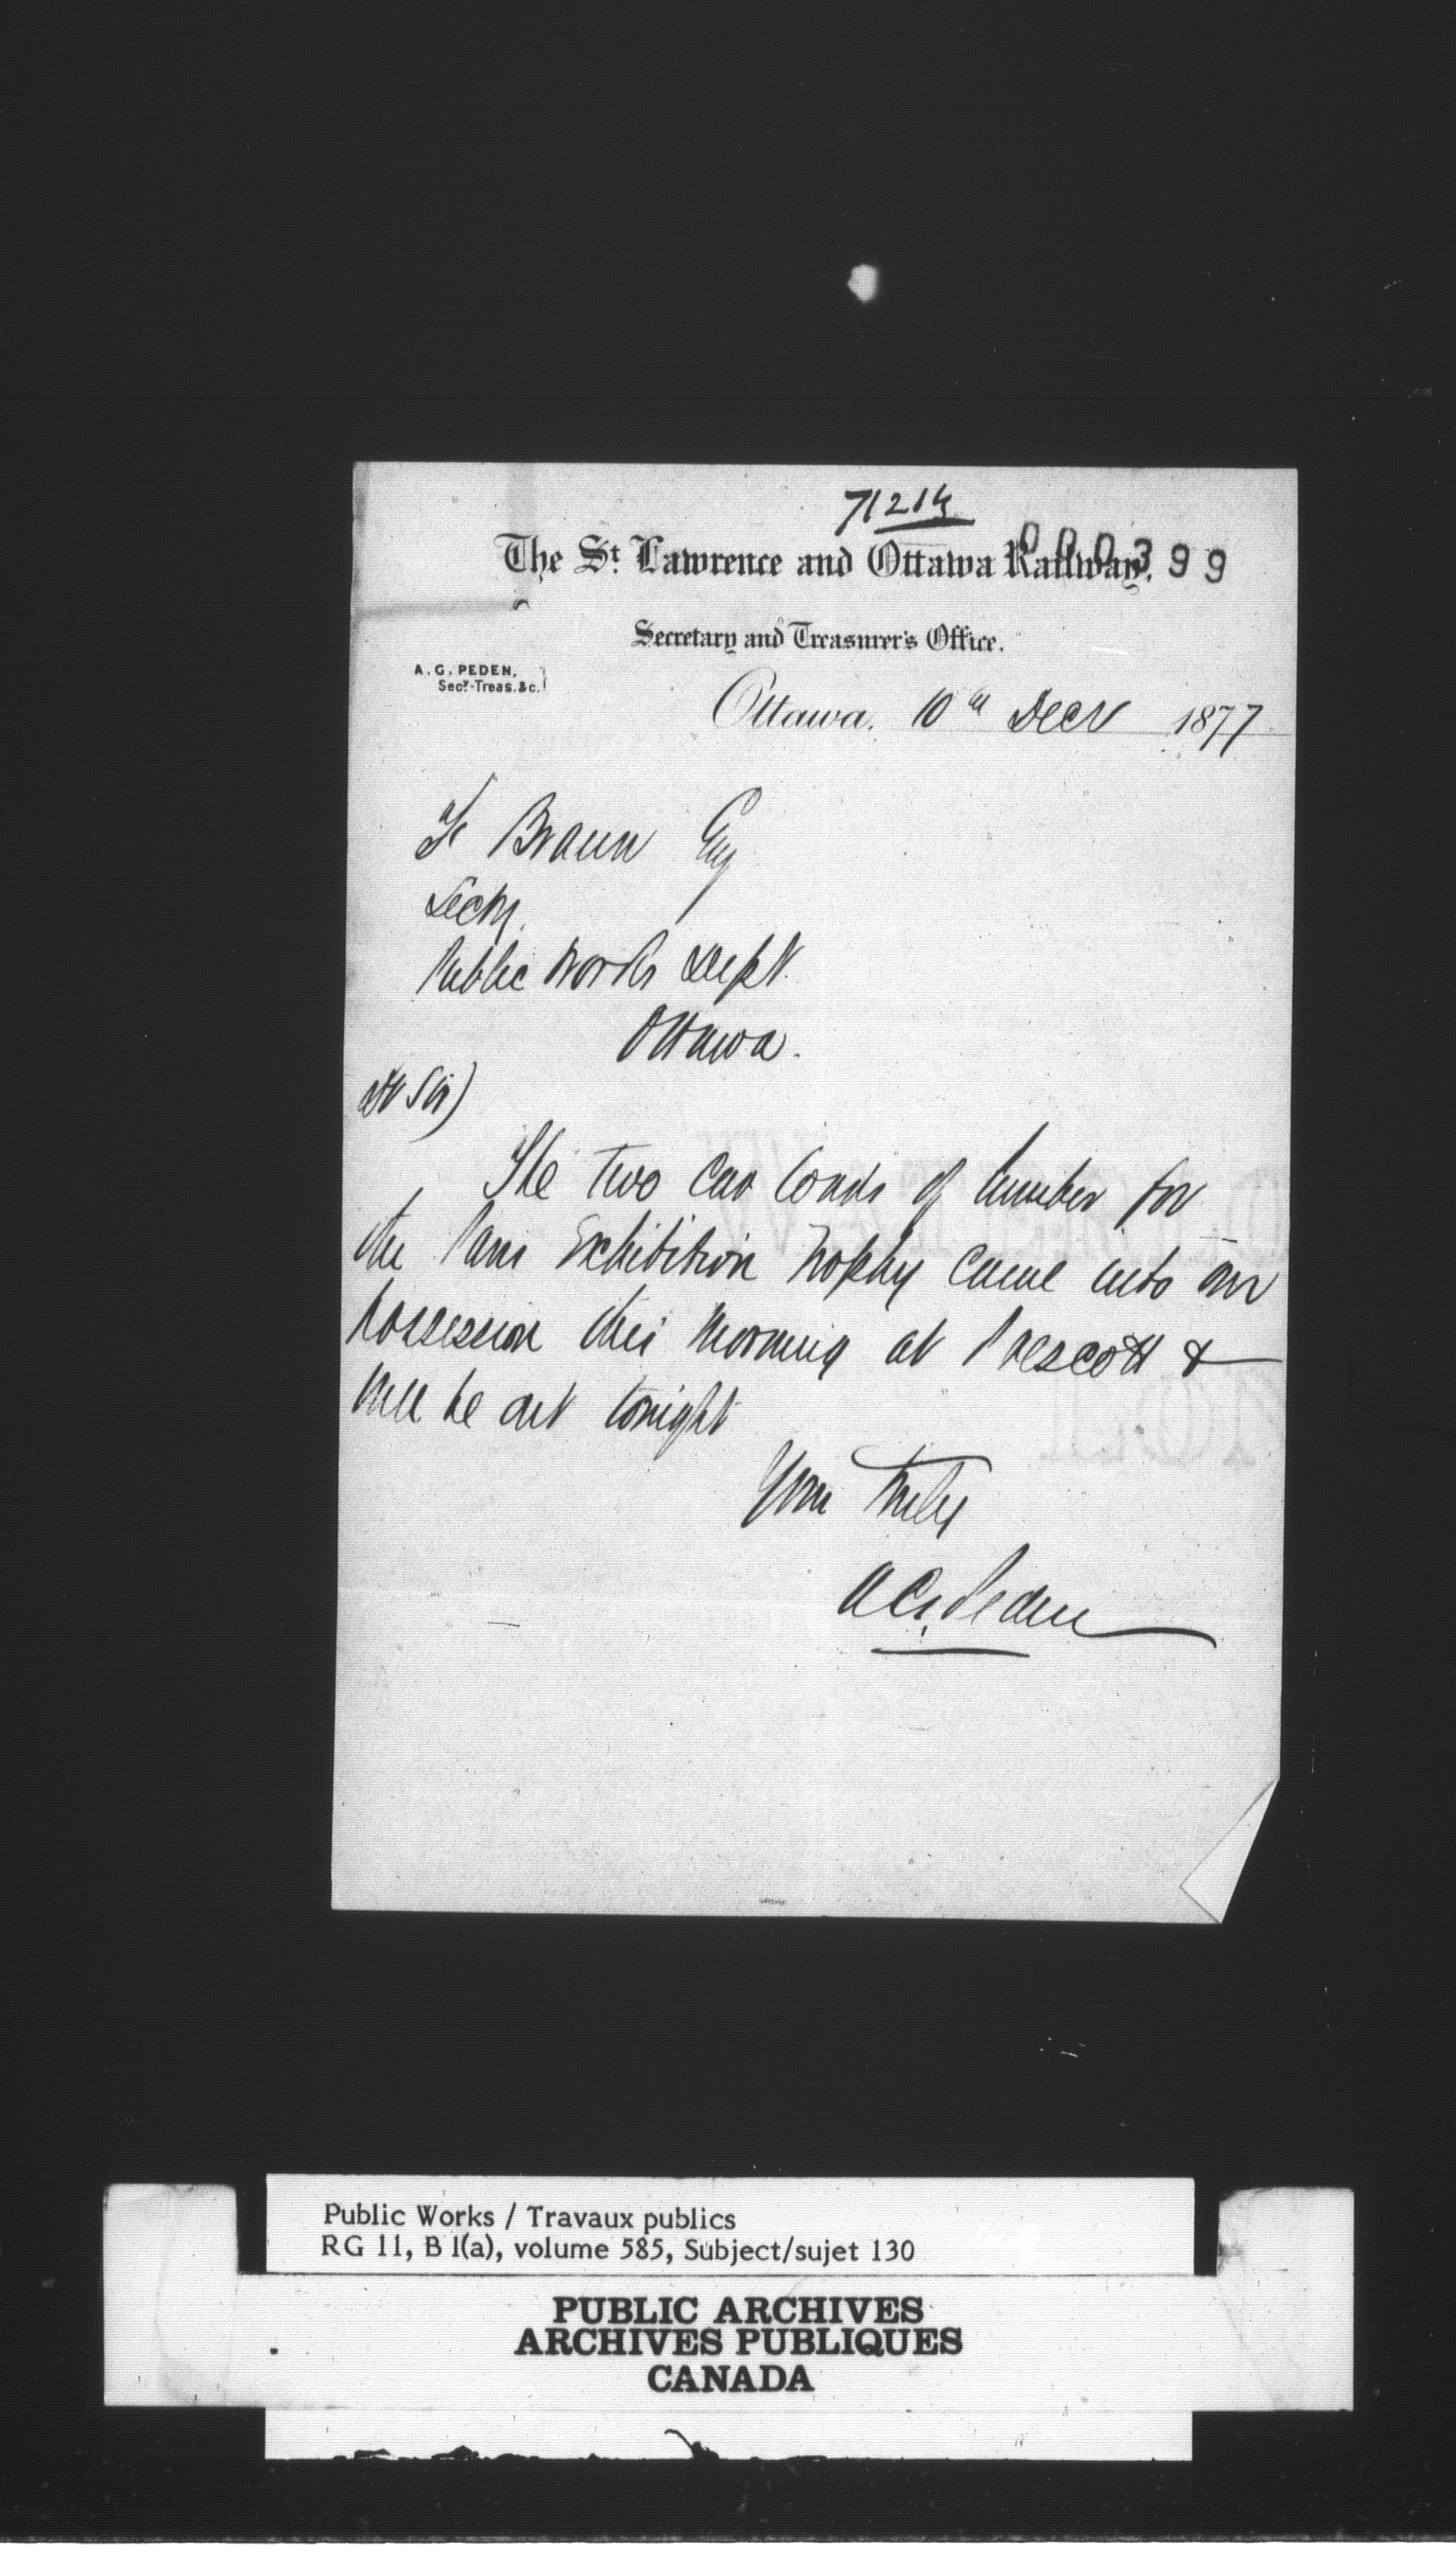 71214
000399
The St. Lawrence and Ottawa Railway.
Secretary and Treasurer's Office.
A. G. PEDEN,
Secy.-Treas. &c.
Ottawa, 10th Decr 1877
F Braun Esq
Secy.
Public Works Dept.
Ottawa.
Dr Sir)
The two car loads of lumber for
the Paris Exhibition Trophy came into our
possession this morning at Prescott &
will be out tonight
Yours Truly
A G. Peden
Public Works / Travaux publics
RG 11, B 1(a), volume 585, Subject/sujet 130
PUBLIC ARCHIVES
ARCHIVES PUBLIQUES
CANADA